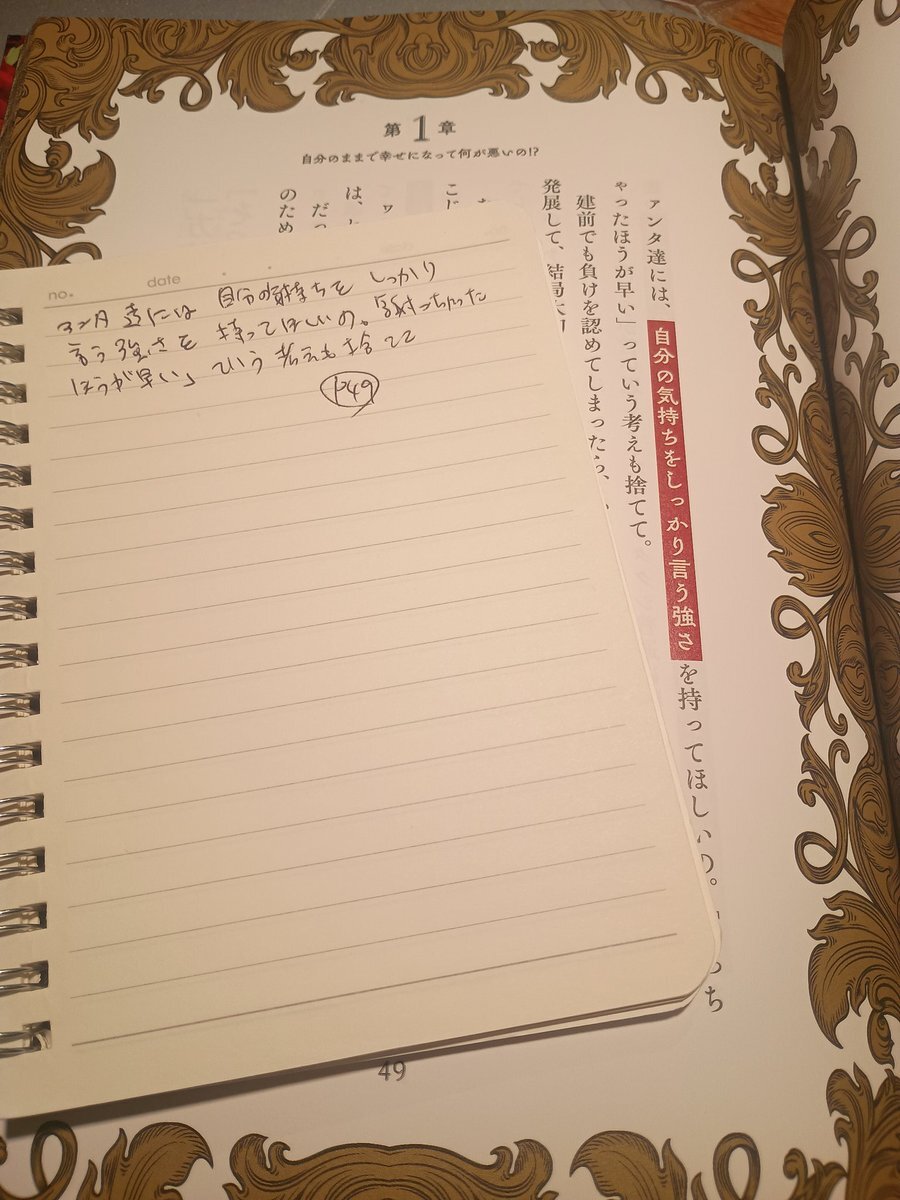 第1章
自分のままで幸せになって何が悪いの!?
アンタ達には、自分の気持ちをしっかり言う強さを持ってほしいの。
ゃったほうが早い」っていう考えも捨てて。
建前でも負けを認めてしまったら、
発展して、結局大
こじ
は、
だっ
のため
49
no.
date
アンタ達には 自分の気持ちを しっかり
言う強さを 持ってほしいの。謝っちゃった
ほうが早い」っていう 考えも捨てて
P49